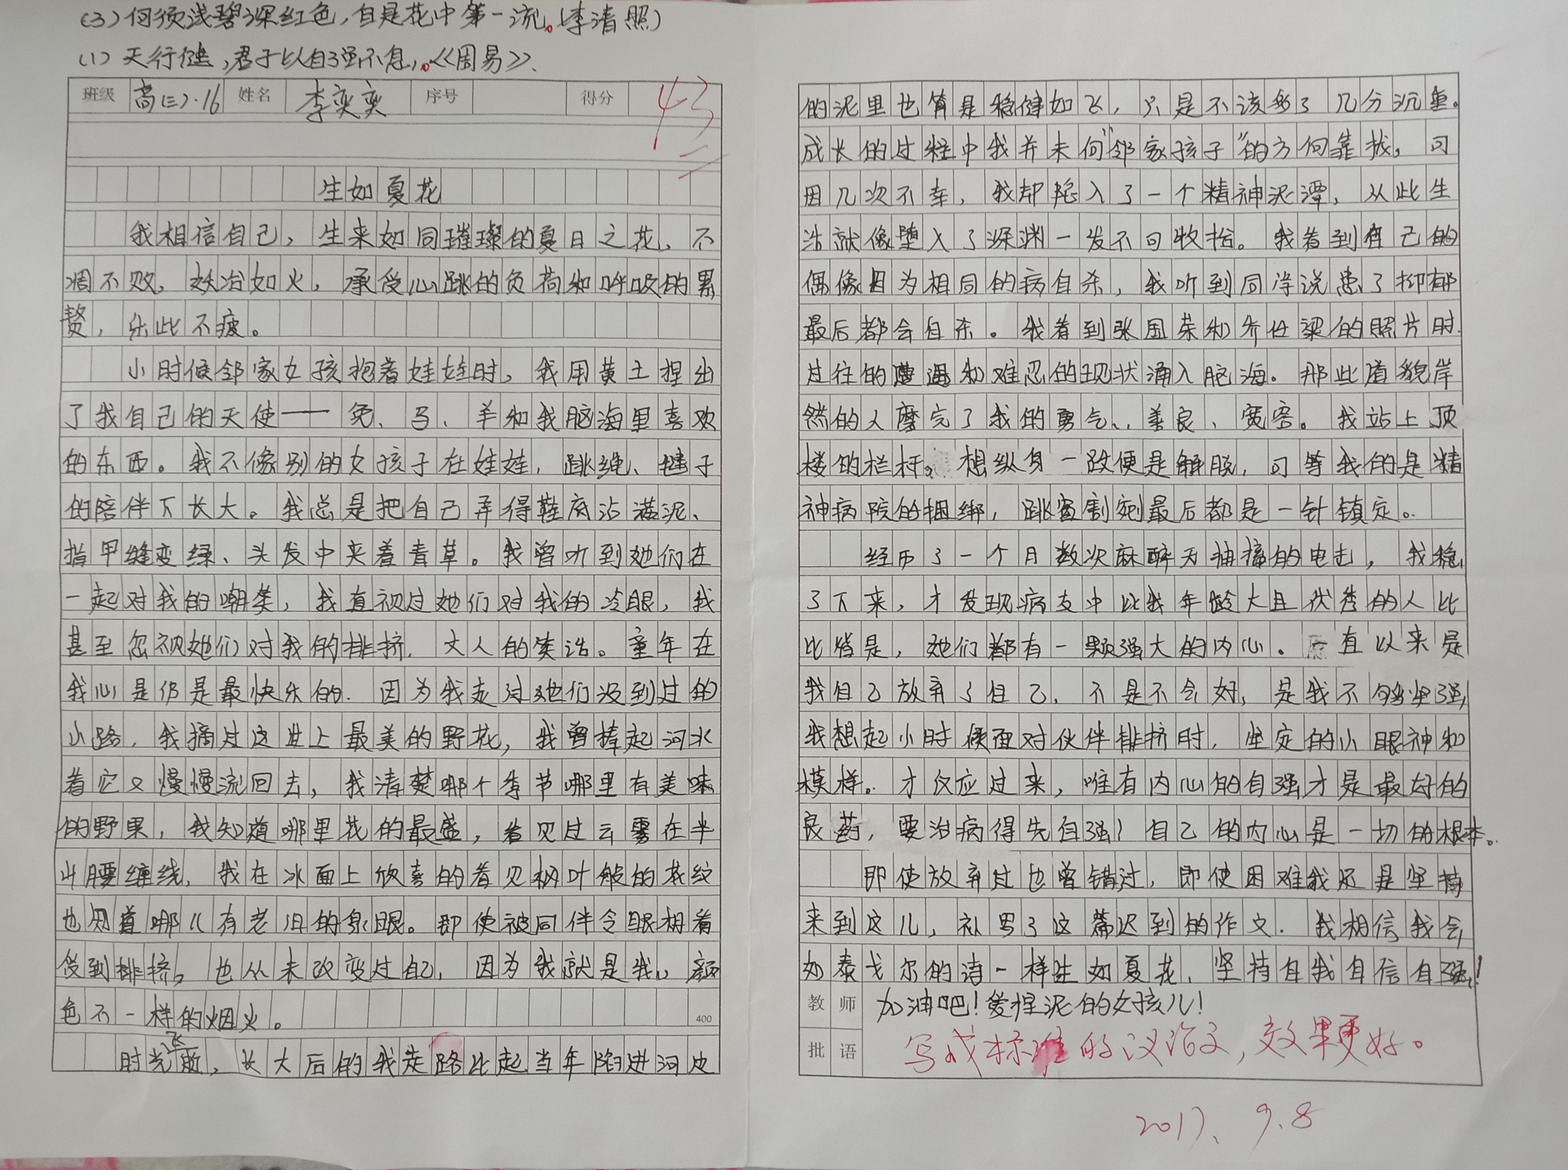 (3) 何须浅碧深红色,自是花中第一流。(李清照)
(1) 天行健,君子以自强不息。《周易》、
班级 高(三)·16 姓名 李奕奕 序号 得分 43
生如夏花
我相信自己,生来如同璀璨的夏日之花,不
凋不败,妖治如火,承受心跳的负荷和呼吸的累
赘,乐此不疲。
小时候邻家女孩抱着娃娃时,我用黄土捏出
了我自己的天使——兔、马、羊和我脑海里喜欢
的东西。我不像别的女孩子在娃娃,跳绳、毽子
的陪伴下长大。我总是把自己弄得鞋底沾满泥、
指甲缝变绿、头发中夹着青草。我曾听到她们在
一起对我的嘲笑,我直视过她们对我的冷眼,我
甚至忽视她们对我的排挤,大人的笑话。童年在
我心里仍是最快乐的,因为我走过她们没到过的
小路,我摘过这世上最美的野花,我曾捧起河水
看它又慢慢流回去,我清楚哪个季节哪里有美味
的野果,我知道哪里花的最盛,看见过云雾在半
山腰缠绕,我在冰面上欣喜的看见树叶般的花纹
也知道哪儿有老旧的泉眼。即使被同伴冷眼相看
受到排挤。也从未改变过自己,因为我就是我,颜
色不一样的烟火。
400
时光飞逝,长大后的我走路比起当年陷进河边
的泥里也算是稳健如飞,只是不该多了几分沉重。
成长的过程中我并未向“邻家孩子”的方向靠拢,可
因几次不幸,我却陷入了一个精神泥潭,从此生
活就像堕入了深渊一发不可收拾。我看到自己的
偶像因为相同的病自杀,我听到同学说患了抑郁
最后都会自杀。我看到张国荣和乔任梁的照片时
过往的遭遇和难忍的现状涌入脑海。那些道貌岸
然的人磨完了我的勇气、善良、宽容。我站上顶
楼的栏杆。想纵身一跃便是解脱,可等我的是精
神病院的捆绑,跳窗割宛最后都是一针镇定。
经历了一个月数次麻醉无抽搐的电击,我稳
了下来,才发现病友中比我年龄大且优秀的人比
比皆是,她们都有一颗强大的内心。原直以来是
我自己放弃了自己,不是不会好,是我不够坚强,
我想起小时候面对伙伴排挤时,坚定的小眼神和
模样。才反应过来,唯有内心的自强才是最好的
良药,要治病得先自强!自己的内心是一切的根本。
即使放弃过也曾错过,即使困难我还是坚持
来到这儿,补写了这篇迟到的作文。我相信我会
如泰戈尔的诗一样生如夏花,坚持自我自信自强!
教师 加油吧!爱捏泥的女孩儿!
批语 写成标准的议论文,效果更好。
2017、9.8